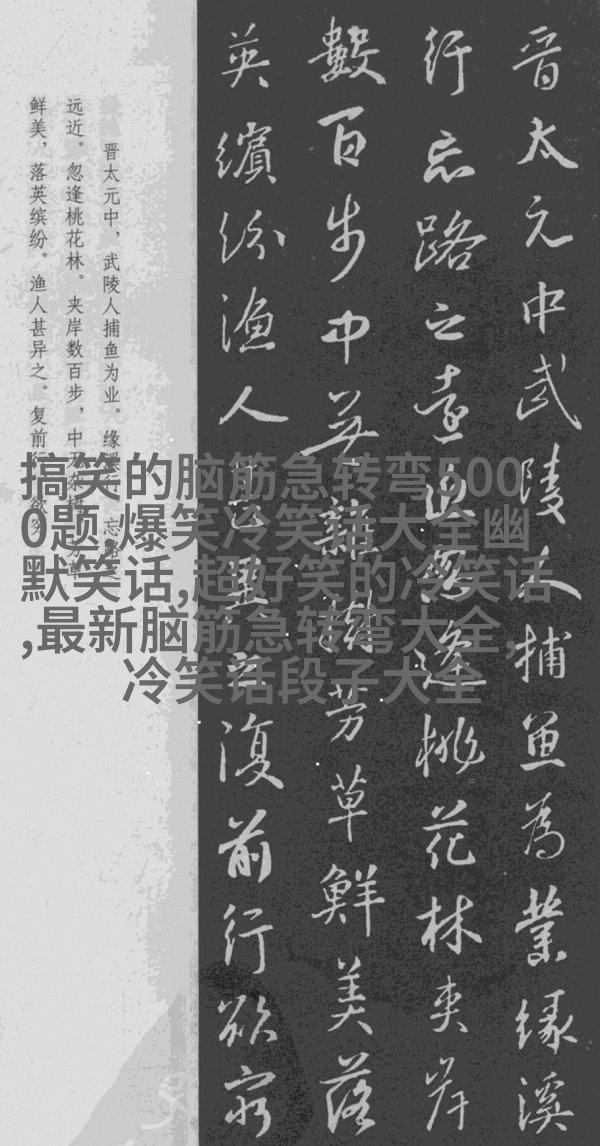 晋太元中武陵人捕魚為業緣溪
行忘路之遠近忽逢桃花林夾岸
數百步中無雜樹芳草鮮美落
英繽紛漁人甚異之復前行欲窮
晋太元中，武陵人捕鱼为业。缘溪行，忘路之
远近。忽逢桃花林。夹岸数百步，中无杂树，芳草
鲜美，落英缤纷。渔人甚异之。复前行，欲穷
搞笑的脑筋急转弯500
0题,爆笑冷笑话大全幽
默笑话,超好笑的冷笑话
,最新脑筋急转弯大全,
冷笑话段子大全